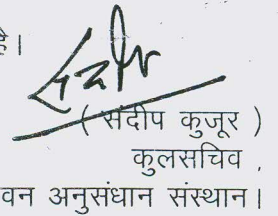 है।
( संदीप कुजूर )
कुलसचिव ,
वन अनुसंधान संस्थान।